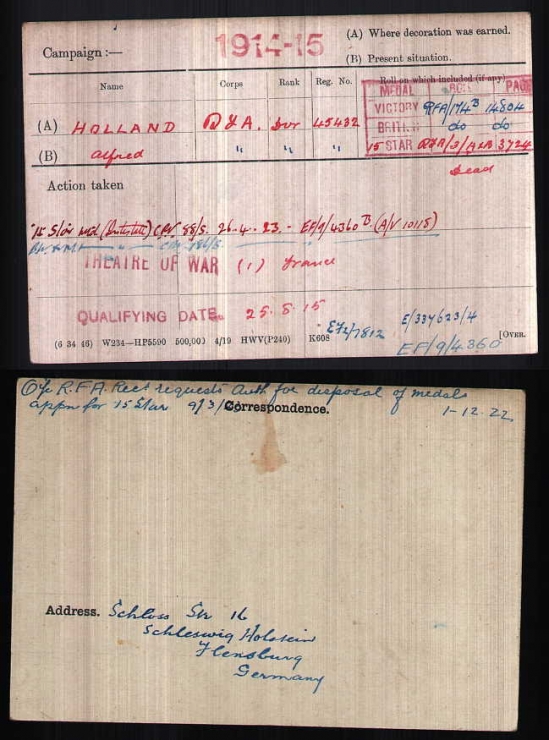 Campaign :— 1914-15
(A) Where decoration was earned.
(B) Present situation.
Name Corps Rank Reg. No. Roll on which included (if any)
MEDAL PAGE
(A) HOLLAND R.F.A. Dvr 45432 VICTORY RFA/174B 14804
BRITISH do do
(B) Alfred " " " 15 STAR RFA/3/A&B 3724
Dead
Action taken
15 Star 26-4-23. - EF/9/4360 B. (A/V 10115)
THEATRE OF WAR (1) France
QUALIFYING DATE. 25.8.15
EF2/7812 E/337623/4
EF/9/4360
(6 34 46) W234—HP5590 500,000 4/19 HWV(P240) K608 [OVER.
O/c R.F.A. Rect requests Auth for disposal of medals
appn for 15 Star 9/3/ Correspondence. 1-12-22
Address. Schloss Str 16
Schleswig Holstein
Flensburg
Germany